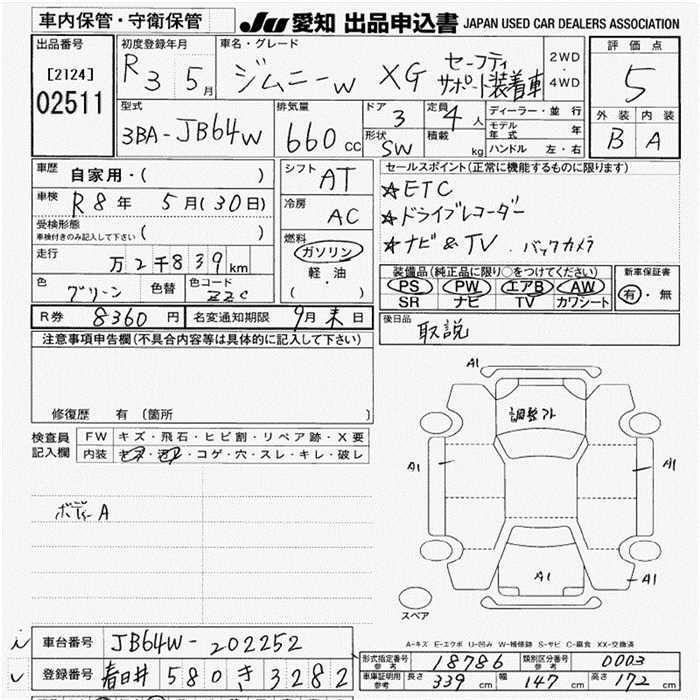 車内保管・守衛保管
JU 愛知 出品申込書 JAPAN USED CAR DEALERS ASSOCIATION
出品番号
[2124]
02511
初度登録年月
R3 5月
車名・グレード
ジムニーW XG セーフティ
サポート装着車
2WD
・
4WD
評価点
5
外装 内装
B A
型式
3BA-JB64W
排気量
660cc
ドア 3
形状 SW
定員 4人
積載 kg
ディーラー・並行
モデル年式 年
ハンドル 左・右
車歴 自家用・( )
車検 R8年 5月(30日)
受検形態
車検付きのみ記入して下さい ( )
走行 万2千839km
色 グリーン 色替 色コード ZZC
シフト AT
冷房 AC
燃料
ガソリン
軽・油
( )
セールスポイント(正常に機能するものに限ります)
☆ETC
☆ドライブレコーダー
☆ナビ&TV. バックカメラ
装備品(純正品に限り○をつけてください)
PS PW エアB AW
SR ナビ TV カワシート
新車保証書
有・無
R券 8360円 名変通知期限 9月末日
後日品 取説
注意事項申告欄(不具合内容等は具体的に記入して下さい)
修復歴 有 (箇所 )
検査員
記入欄
FW キズ・飛石・ヒビ割・リペア跡・X要
内装 ・コゲ・穴・スレ・キレ・破レ
ボディーA
A1
調整アト
A1
A1
A1
A1
スペア
A-キズ E-エクボ U-凹み W-補修跡 S-サビ C-腐食 XX-交換済
車台番号 JB64W-202252
登録番号 春日井 580 き 3282
型式指定番号
参考 18786
類別区分番号
参考 0003
車庫証明用
参考 長さ 339cm 幅 147cm 高さ 172cm